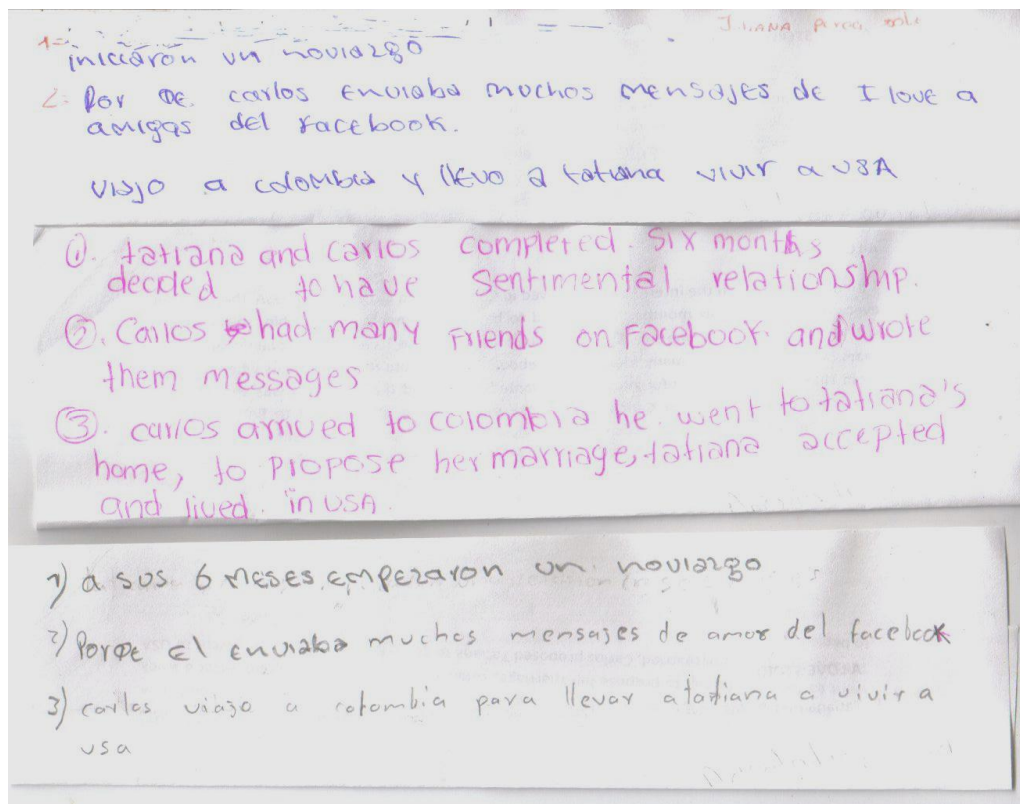 JLIANA
1=
iniciaron un noviazgo
2= Por qe. carlos enviaba muchos mensajes de I love a
amigas del facebook.
viajo a colombia y llevo a tatiana vivir a USA
①. tatiana and carlos completed. six months
decided to have sentimental relationship.
②. Carlos had many Friends on Facebook. and wrote
them messages
③. carlos arrived to colombia he went to tatiana's
home, to propose her marriage, tatiana accepted
and lived. in USA.
1) a sus 6 meses empezaron un noviazgo
2) Porqe el enviaba muchos mensajes de amor del facebook
3) carlos viajo a colombia para llevar a tatiana a vivir a
usa